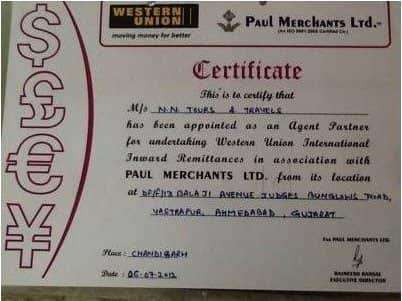 WESTERN
UNION
moving money for better
PAUL MERCHANTS LTD.
(An ISO 9001:2008 Certified Co.)
$
£
€
¥
Certificate
This is to certify that
M/s N.N. TOURS & TRAVELS
has been appointed as an Agent Partner
for undertaking Western Union International
Inward Remittances in association with
PAUL MERCHANTS LTD. from its location
at BALAJI AVENUE JUDGES BUNGLOWS ROAD,
VASTRAPUR, AHMEDABAD, GUJARAT
Place: CHANDIGARH
Date: 06-07-2012
For PAUL MERCHANTS LTD.
RAJNEESH BANSAL
EXECUTIVE DIRECTOR